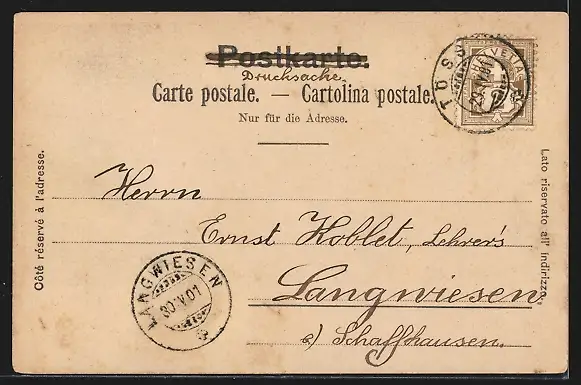 Postkarte.
Drucksache.
Carte postale. — Cartolina postale.
Nur für die Adresse.
Côté réservé à l'adresse.
Lato riservato all' indirizzo.
Herrn
Ernst Koblet, Lehrer's
Langwiesen,
a) Schaffhausen.
LANGWIESEN
30.V.01
TÖSS
HELVETIA
2